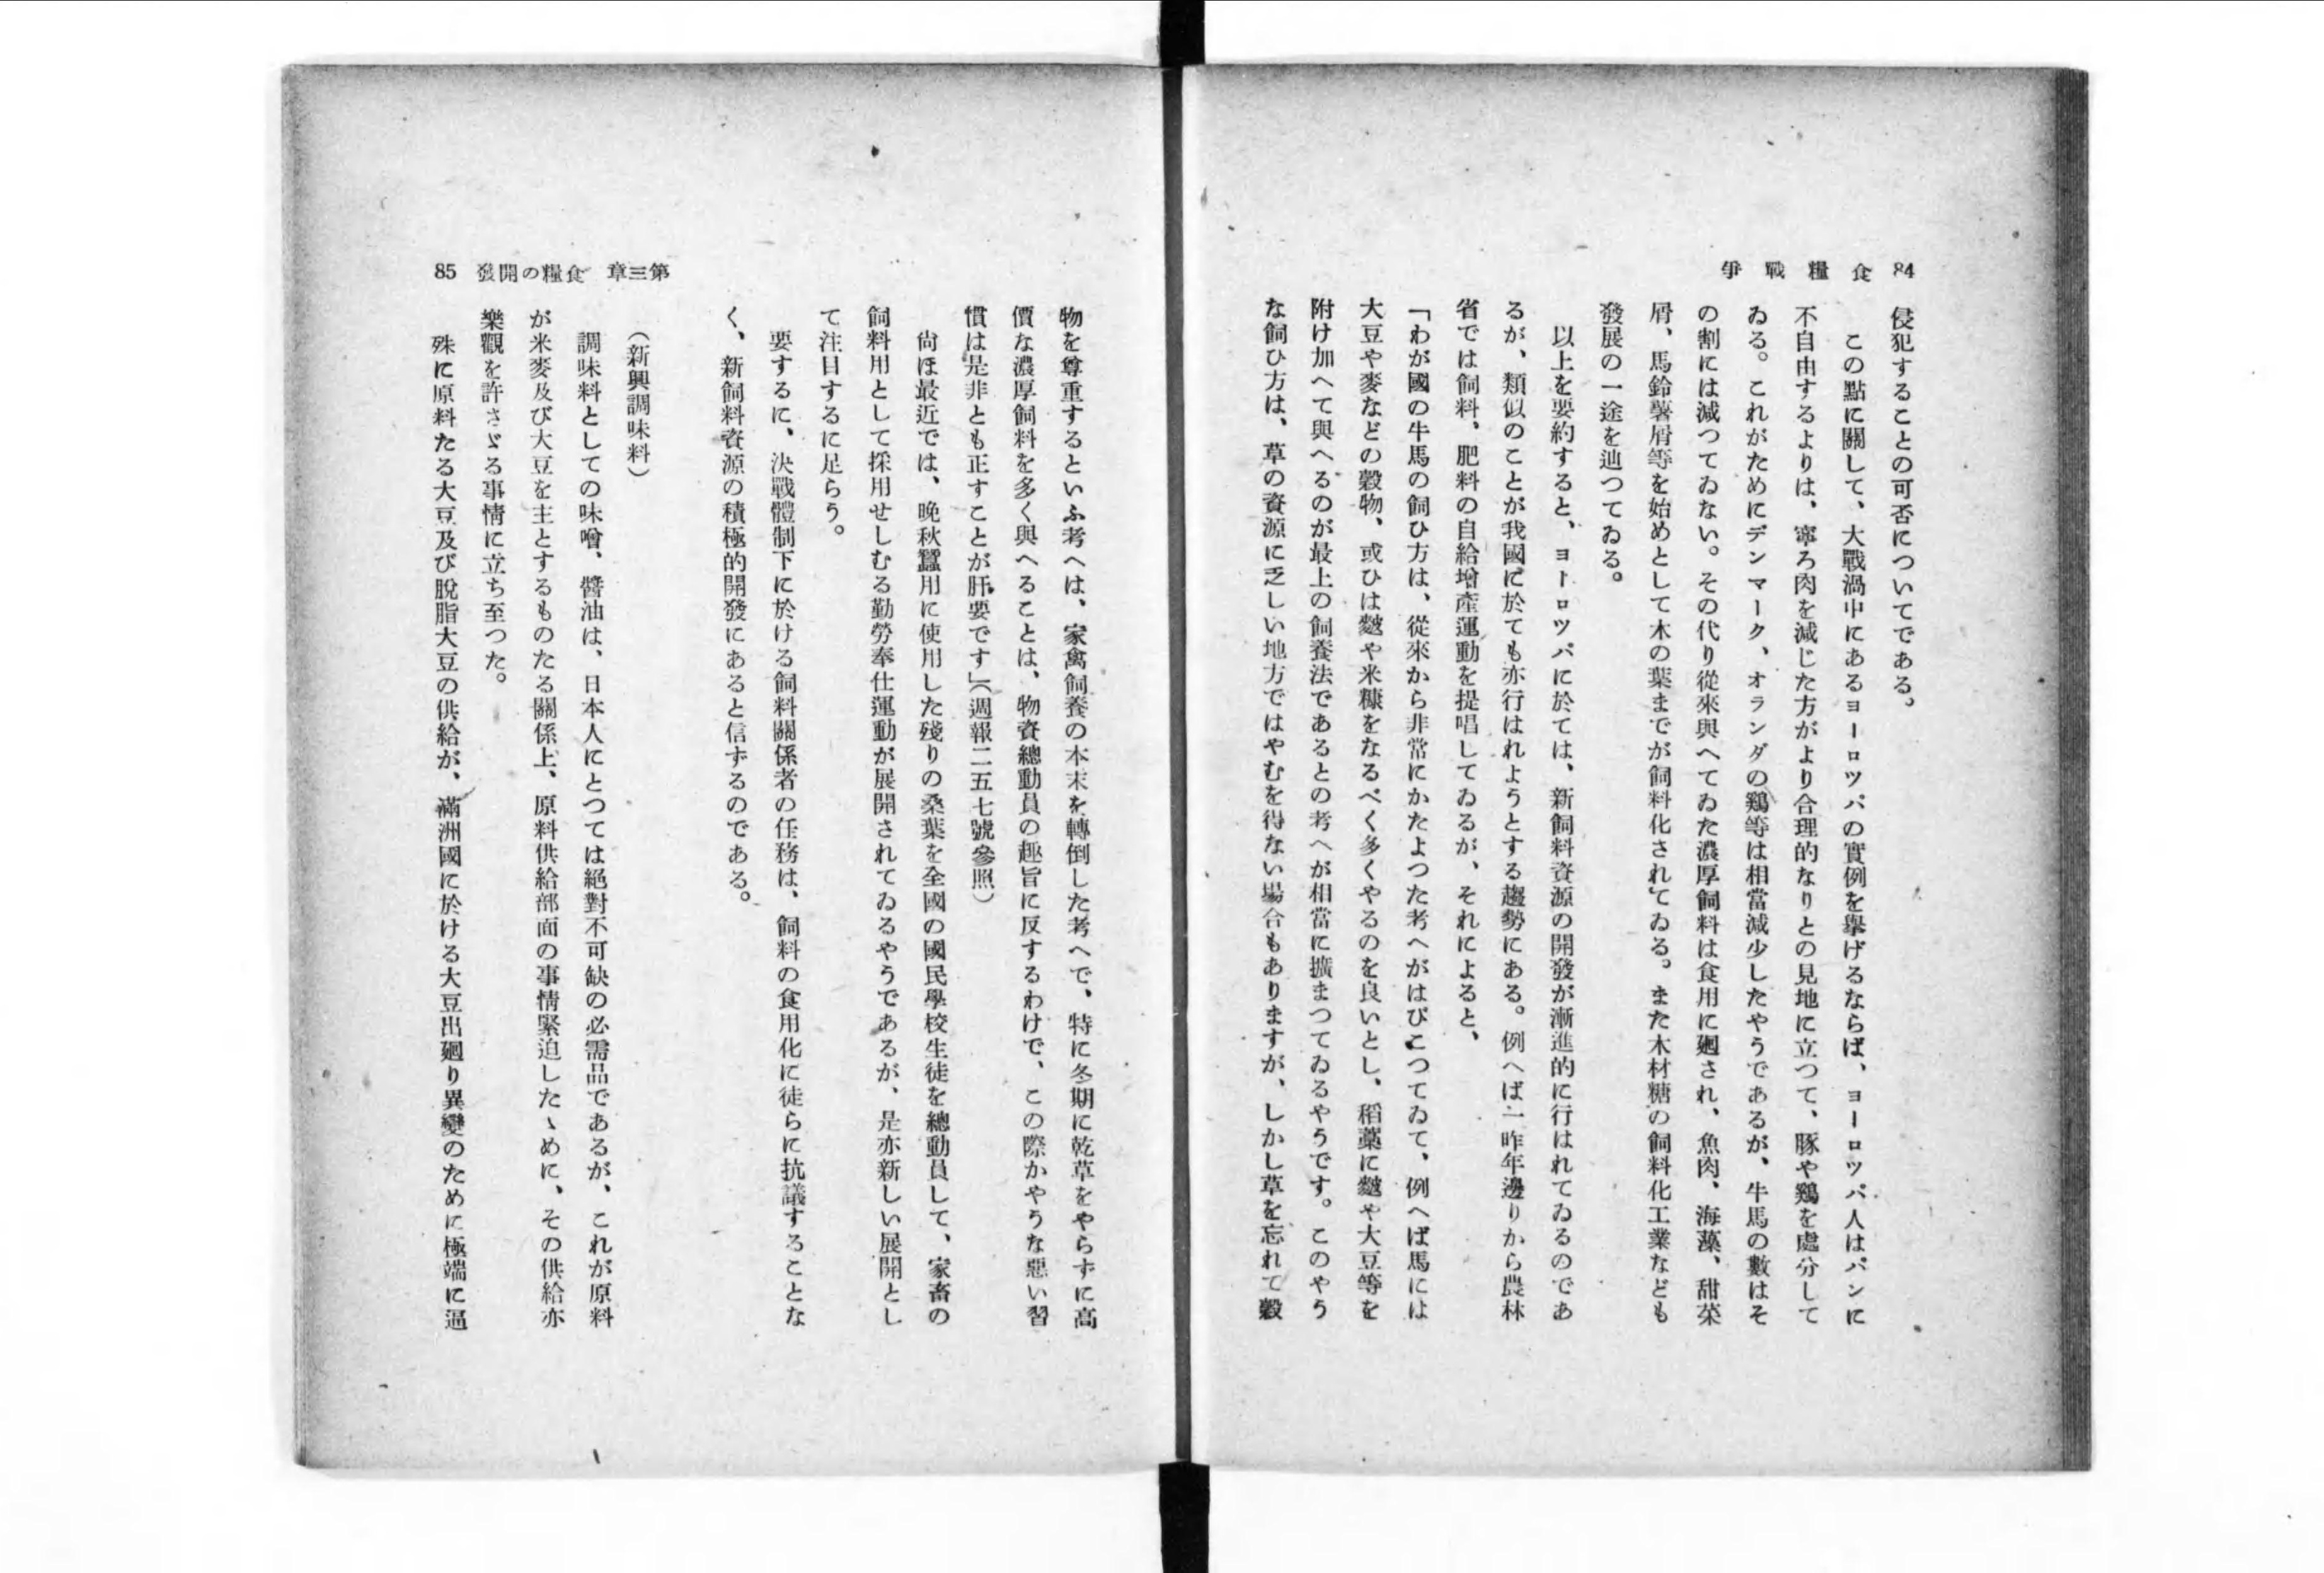 84 食糧戰爭
侵犯することの可否についてである。
この點に關して、大戰渦中にあるヨーロツパの實例を擧げるならば、ヨーロツパ人はパンに
不自由するよりは、寧ろ肉を減じた方がより合理的なりとの見地に立つて、豚や鷄を處分して
ゐる。これがためにデンマーク、オランダの鷄等は相當減少したやうであるが、牛馬の數はそ
の割には減つてゐない。その代り從來與へてゐた濃厚飼料は食用に廻され、魚肉、海藻、甜菜
屑、馬鈴薯屑等を始めとして木の葉までが飼料化されてゐる。また木材糖の飼料化工業なども
發展の一途を辿つてゐる。
以上を要約すると、ヨーロツパに於ては、新飼料資源の開發が漸進的に行はれてゐるのであ
るが、類似のことが我國に於ても亦行はれようとする趨勢にある。例へば一昨年邊りから農林
省では飼料、肥料の自給增產運動を提唱してゐるが、それによると、
「わが國の牛馬の飼ひ方は、從來から非常にかたよつた考へがはびこつてゐて、例へば馬には
大豆や麥などの穀物、或ひは麬や米糠をなるべく多くやるのを良いとし、稻藁に麬や大豆等を
附け加へて與へるのが最上の飼養法であるとの考へが相當に擴まつてゐるやうです。このやう
な飼ひ方は、草の資源に乏しい地方ではやむを得ない場合もありますが、しかし草を忘れて穀
第三章 食糧の開發 85
物を尊重するといふ考へは、家禽飼養の本末を轉倒した考へで、特に冬期に乾草をやらずに高
價な濃厚飼料を多く與へることは、物資總動員の趣旨に反するわけで、この際かやうな惡い習
慣は是非とも正すことが肝要です」（週報二五七號參照）
尙ほ最近では、晩秋蠶用に使用した殘りの桑葉を全國の國民學校生徒を總動員して、家畜の
飼料用として採用せしむる勤勞奉仕運動が展開されてゐるやうであるが、是亦新しい展開とし
て注目するに足らう。
要するに、決戰體制下に於ける飼料關係者の任務は、飼料の食用化に徒らに抗議することな
く、新飼料資源の積極的開發にあると信ずるのである。
（新興調味料）
調味料としての味噌、醬油は、日本人にとつては絕對不可缺の必需品であるが、これが原料
が米麥及び大豆を主とするものたる關係上、原料供給部面の事情緊迫したゝめに、その供給亦
樂觀を許さゞる事情に立ち至つた。
殊に原料たる大豆及び脫脂大豆の供給が、滿洲國に於ける大豆出廻り異變のために極端に逼